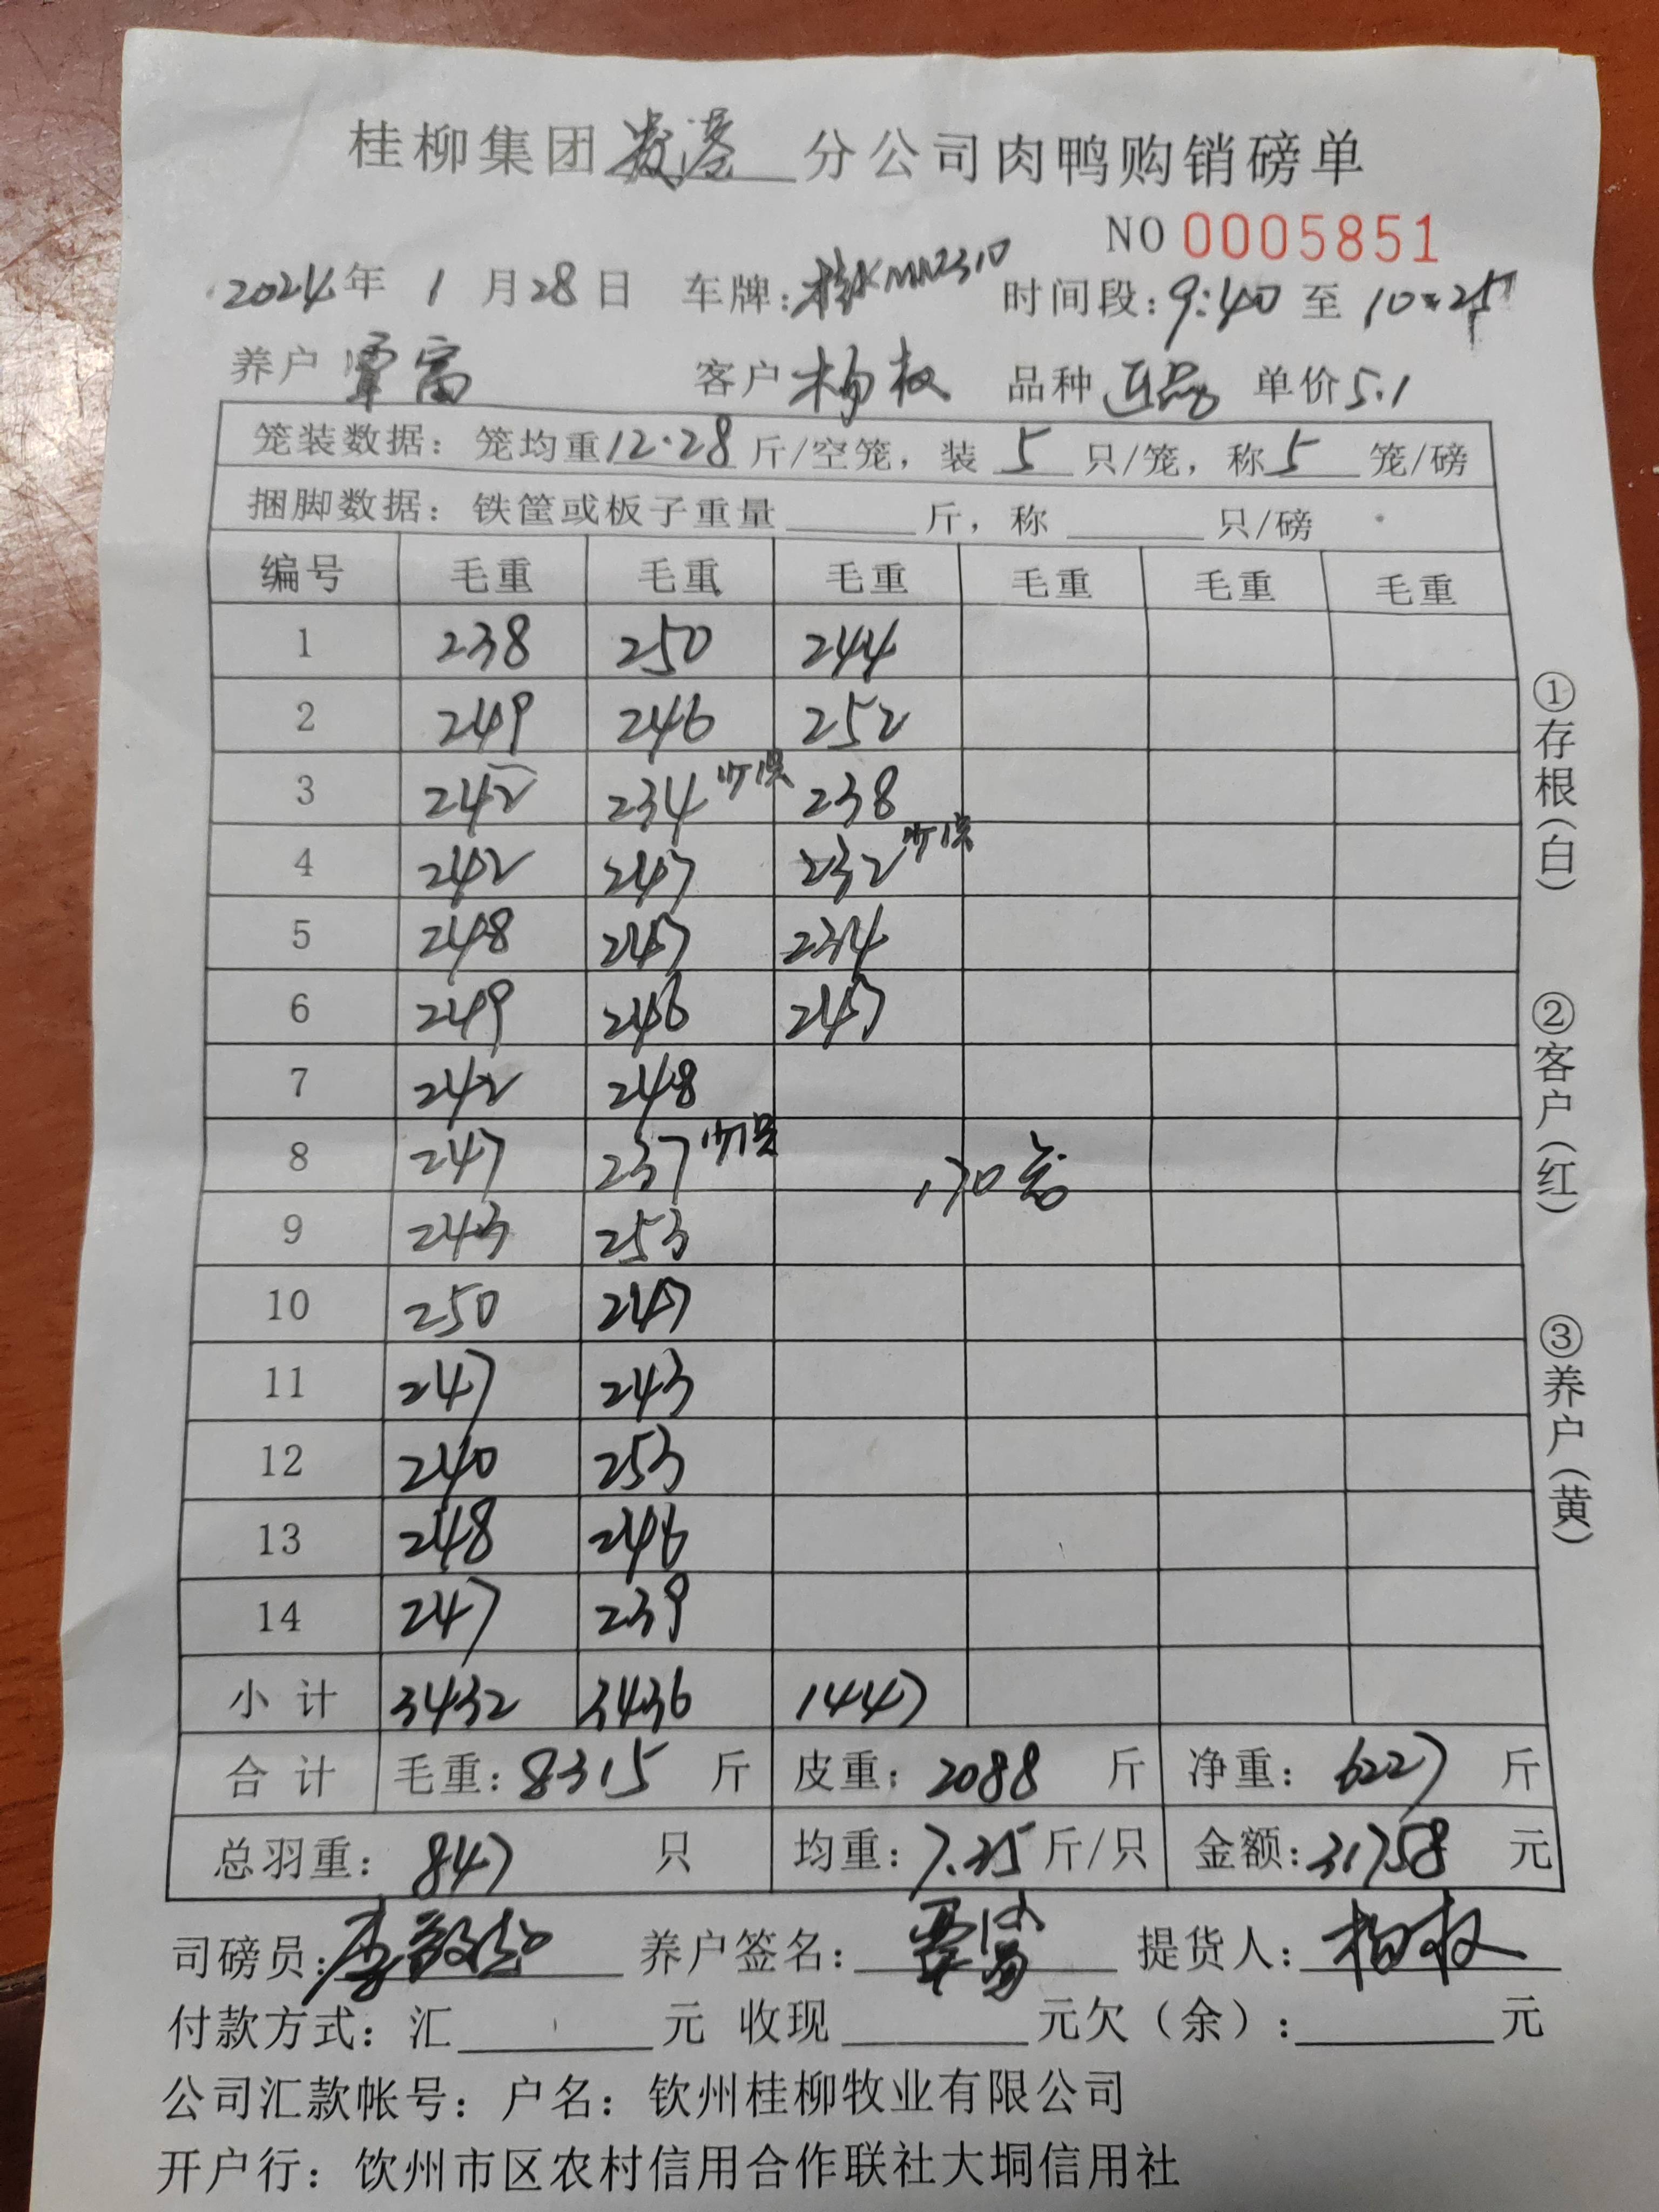 桂柳集团 分公司肉鸭购销磅单
NO 0005851
2024年 1 月 28 日 车牌: 时间段: 9:40 至 10:25
养户 覃富 客户 杨权 品种 正品 单价 5.1
笼装数据: 笼均重 12.28 斤/空笼, 装 5 只/笼, 称 5 笼/磅
捆脚数据: 铁筐或板子重量 斤, 称 只/磅
编号 毛重 毛重 毛重 毛重 毛重 毛重
1 238 250 244
2 249 246 252
3 242 234 238
4 242 247 232
5 248 247 234
6 249 246 247
7 242 248
8 247 237 170笼
9 243 253
10 250 247
11 247 243
12 240 253
13 248 246
14 247 239
小 计 3432 3436 1447
合 计 毛重: 8315 斤 皮重: 2088 斤 净重: 6227 斤
总羽重: 847 只 均重: 7.35 斤/只 金额: 31758 元
司磅员: 养户签名: 覃富 提货人: 杨权
付款方式: 汇 元 收现 元欠(余): 元
公司汇款帐号: 户名: 钦州桂柳牧业有限公司
开户行: 饮州市区农村信用合作联社大垌信用社
①存根(白)
②客户(红)
③养户(黄)